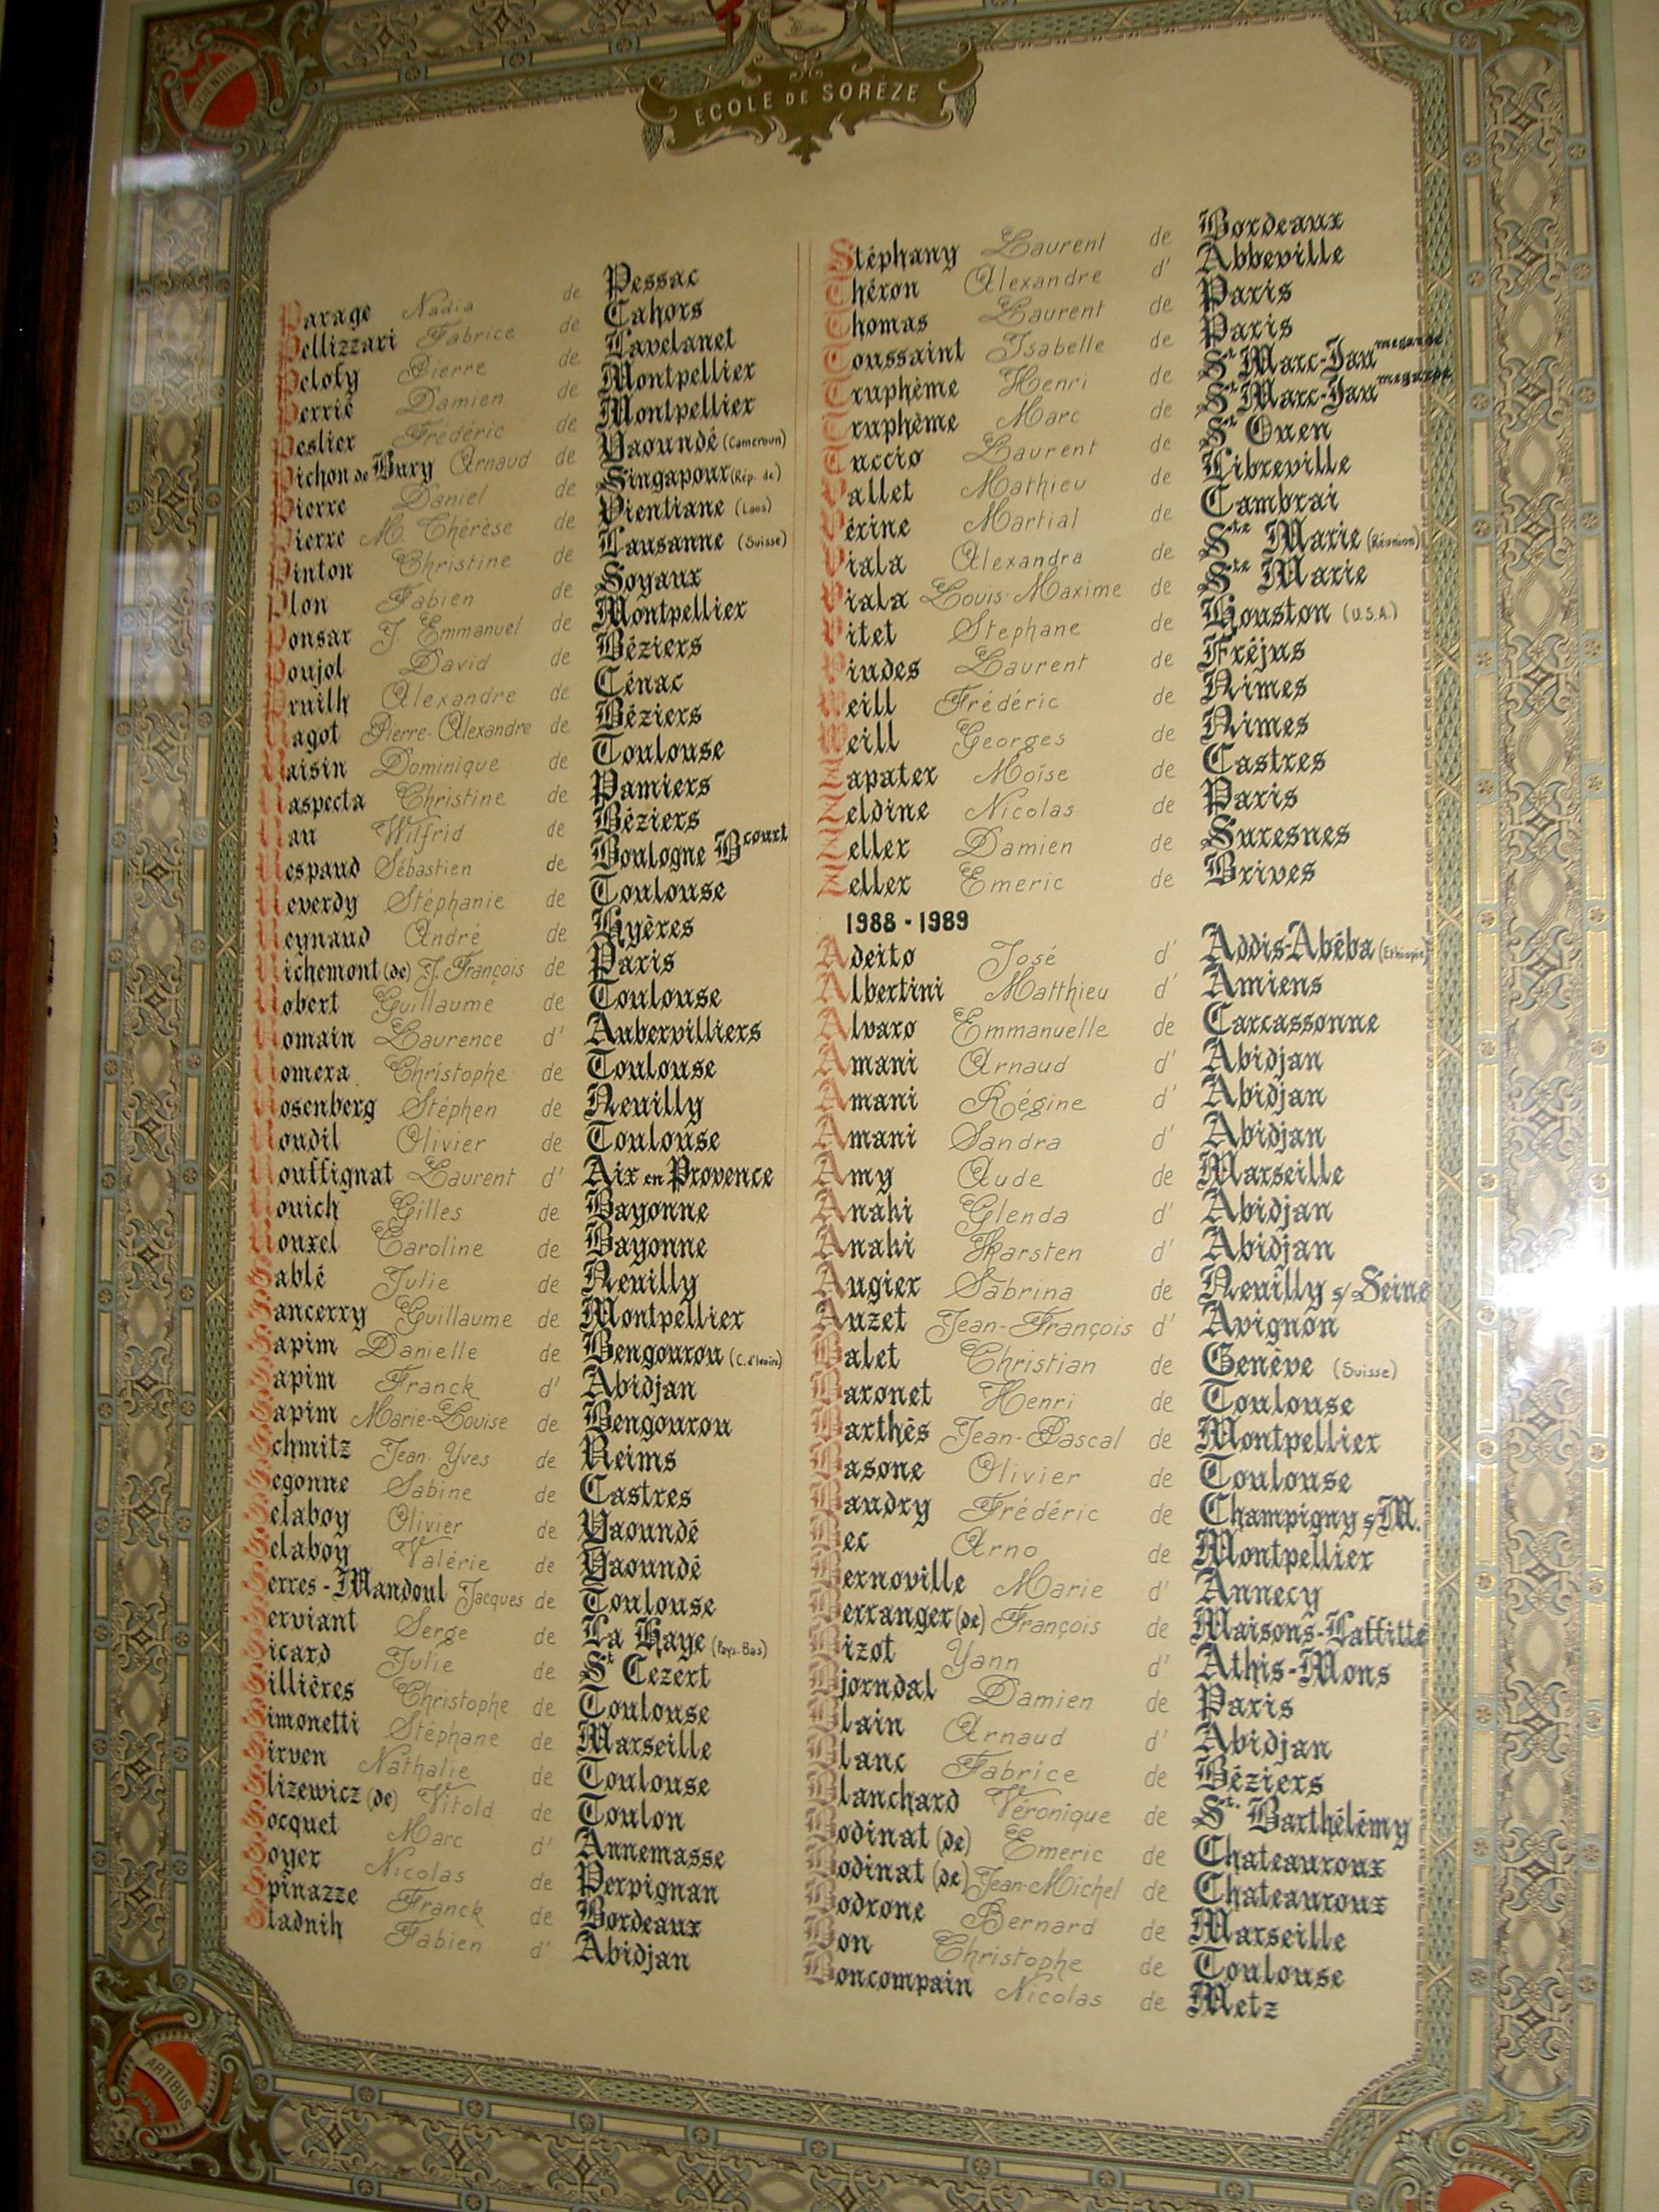 SCIENTIIS
ÉCOLE DE SORÈZE
Parage Nadia de Pessac
Pellizzari Fabrice de Cahors
Pelofy Pierre de Lavelanet
Perrié Damien de Montpellier
Peslier Frédéric de Montpellier
Pichon de Bury Arnaud de Yaoundé (Cameroun)
Pierre Daniel de Singapour (Rép. de)
Pierre M. Thérèse de Vientiane (Laos)
Pinton Christine de Lausanne (Suisse)
Plon Fabien de Soyaux
Ponsar J. Emmanuel de Montpellier
Poujol David de Béziers
Pruilh Alexandre de Cénac
Ragot Pierre-Alexandre de Béziers
Raisin Dominique de Toulouse
Raspecta Christine de Pamiers
Rau Wilfrid de Béziers
Respaud Sébastien de Boulogne Bcourt
Reverdy Stéphanie de Toulouse
Reynaud André de Hyères
Richemont (de) J. François de Paris
Robert Guillaume de Toulouse
Romain Laurence d' Aubervilliers
Romera Christophe de Toulouse
Rosenberg Stéphen de Neuilly
Roudil Olivier de Toulouse
Rouffignat Laurent d' Aix en Provence
Rouich Gilles de Bayonne
Rouxel Caroline de Bayonne
Sablé Julie de Neuilly
Sancerry Guillaume de Montpellier
Sapim Danielle de Bengourou (C. d'Ivoire)
Sapim Franck d' Abidjan
Sapim Marie-Louise de Bengourou
Schmitz Jean-Yves de Reims
Segonne Sabine de Castres
Selaboy Olivier de Yaoundé
Selaboy Valérie de Yaoundé
Serres-Mandoul Jacques de Toulouse
Serviant Serge de La Haye (Pays-Bas)
Sicard Julie de St Cezert
Sillières Christophe de Toulouse
Simonetti Stéphane de Marseille
Sirven Nathalie de Toulouse
Slizewicz (de) Vitold de Toulon
Socquet Marc d' Annemasse
Soyer Nicolas de Perpignan
Spinazze Franck de Bordeaux
Stadnih Fabien d' Abidjan
Stéphany Laurent de Bordeaux
Théron Alexandre d' Abbeville
Thomas Laurent de Paris
Toussaint Isabelle de Paris
Truphème Henri de St Marc-Jaumegarde
Truphème Marc de St Marc-Jaumegarde
Tuccio Laurent de St Ouen
Vallet Mathieu de Libreville
Vérine Martial de Cambrai
Viala Alexandra de Ste Marie (Réunion)
Viala Louis-Maxime de Ste Marie
Vitet Stephane de Houston (U.S.A.)
Viudes Laurent de Fréjus
Weill Frédéric de Nimes
Weill Georges de Nimes
Zapater Moïse de Castres
Zeldine Nicolas de Paris
Zeller Damien de Suresnes
Zeller Emeric de Brives
1988 - 1989
Adeito José d' Addis-Abéba (Ethiopie)
Albertini Matthieu d' Amiens
Alvaro Emmanuelle de Carcassonne
Amani Arnaud d' Abidjan
Amani Régine d' Abidjan
Amani Sandra d' Abidjan
Amy Aude de Marseille
Anahi Glenda d' Abidjan
Anahi Karsten d' Abidjan
Augier Sabrina de Neuilly s/ Seine
Auzet Jean-François d' Avignon
Balet Christian de Genève (Suisse)
Baronet Henri de Toulouse
Barthés Jean-Pascal de Montpellier
Basone Olivier de Toulouse
Baudry Frédéric de Champigny s/M.
Bec Arno de Montpellier
Bernoville Marie d' Annecy
Berranger (de) François de Maisons-Laffitte
Bizot Yann d' Athis-Mons
Bjorndal Damien de Paris
Blain Arnaud d' Abidjan
Blanc Fabrice de Béziers
Blanchard Véronique de St. Barthélémy
Bodinat (de) Emeric de Chateauroux
Bodinat (de) Jean-Michel de Chateauroux
Bodrone Bernard de Marseille
Bon Christophe de Toulouse
Boncompain Nicolas de Metz
ARTIBUS